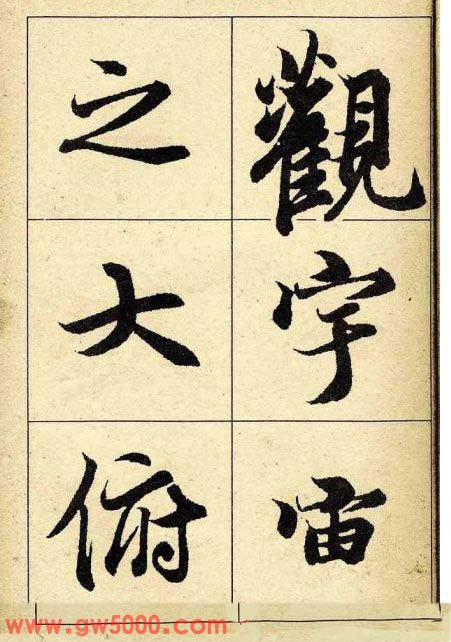 觀宇宙
之大俯
www.gw5000.com